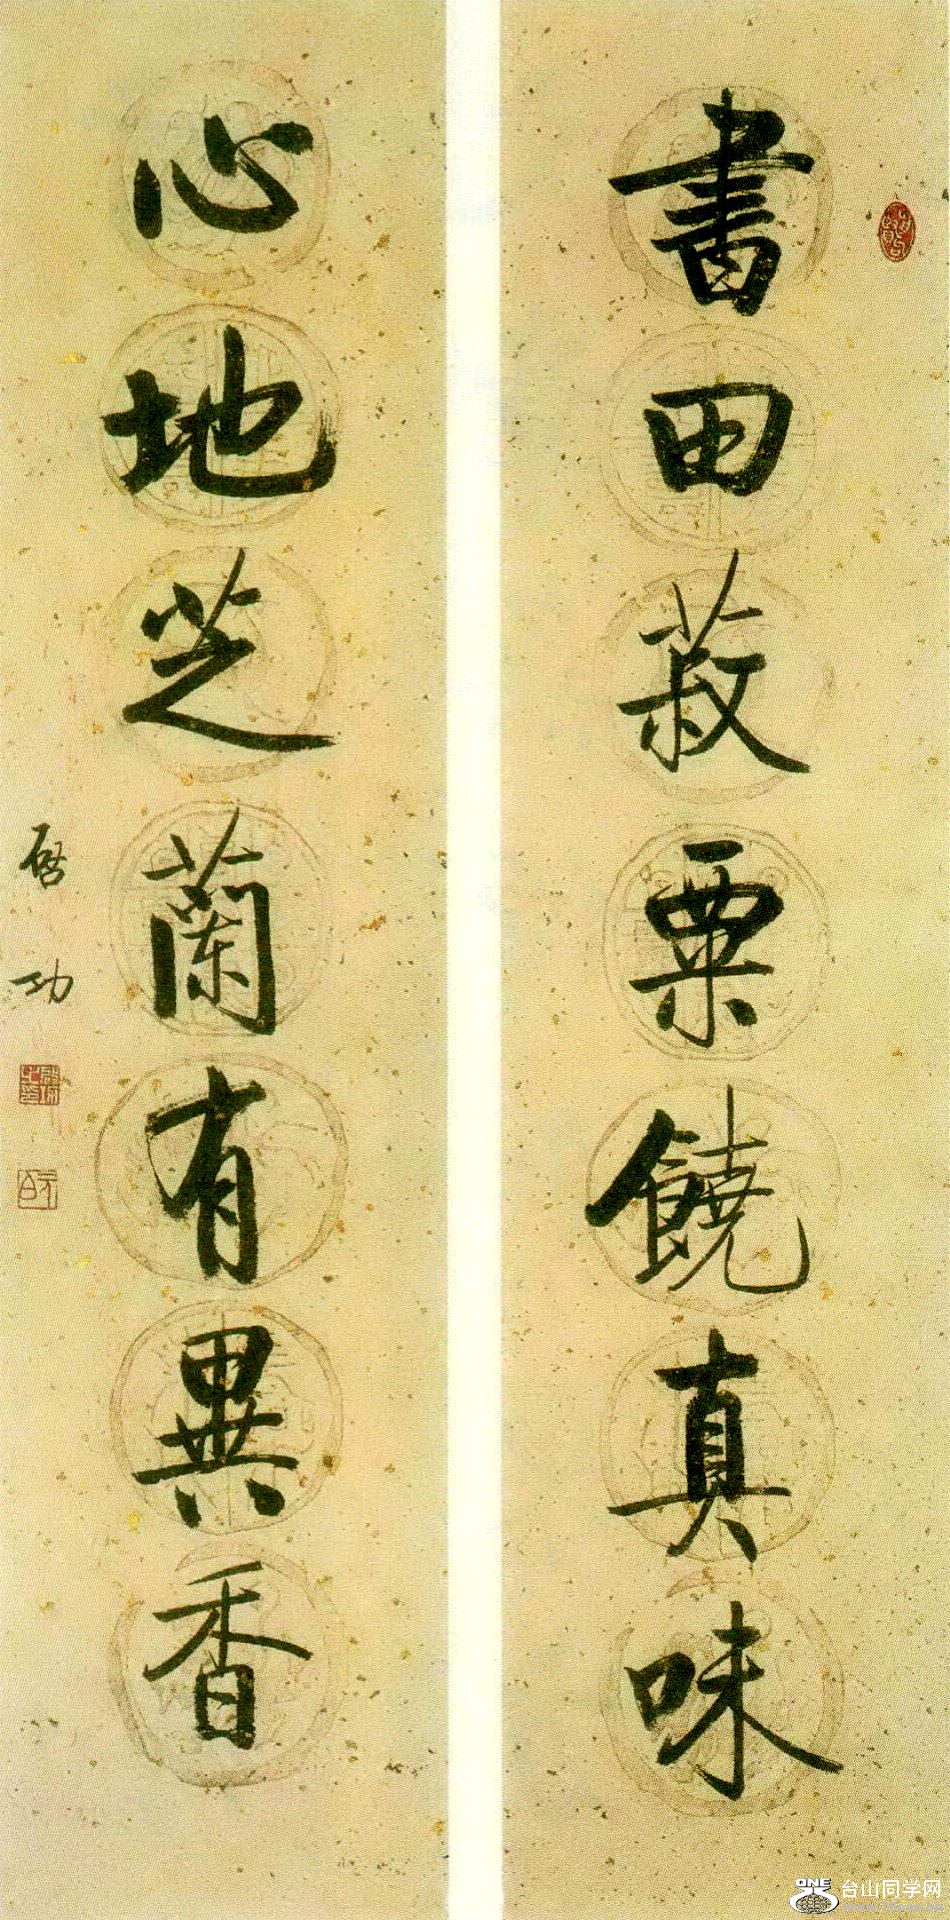 書田菽粟饒真味
心地芝蘭有異香
啓功
ONE
台山同学网